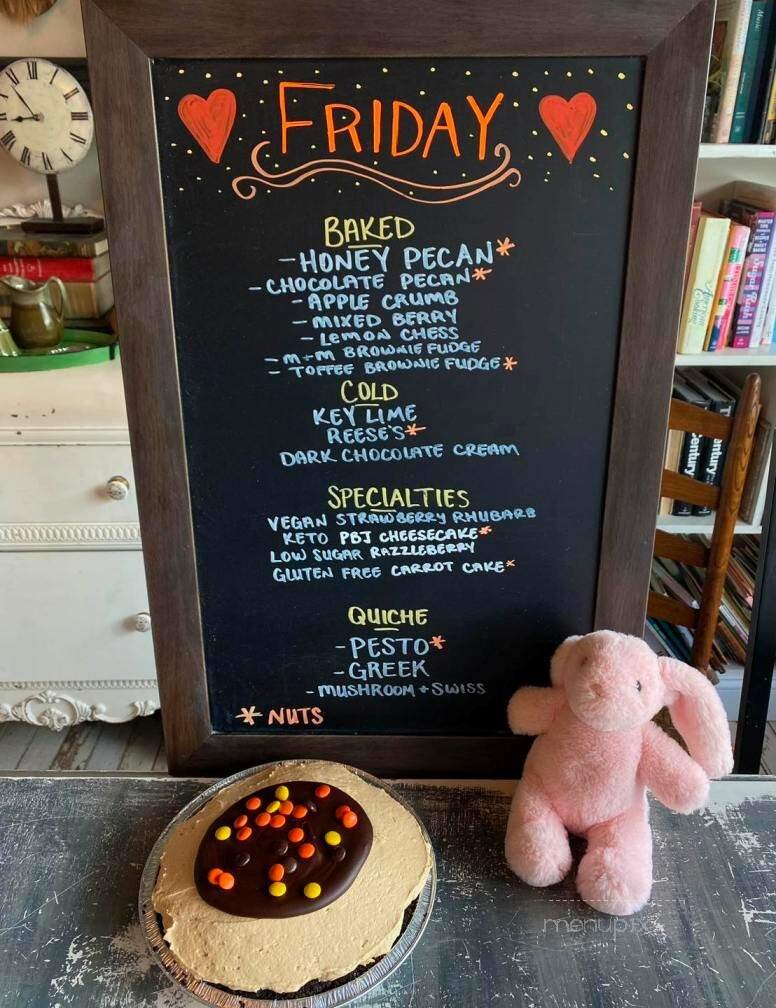 FRIDAY
BAKED
- HONEY PECAN *
- CHOCOLATE PECAN *
- APPLE CRUMB
- MIXED BERRY
- LEMON CHESS
- M+M BROWNIE FUDGE
- TOFFEE BROWNIE FUDGE *
COLD
KEY LIME
REESE'S *
DARK CHOCOLATE CREAM
SPECIALTIES
VEGAN STRAWBERRY RHUBARB
KETO PBJ CHEESECAKE *
LOW SUGAR RAZZLEBERRY
GLUTEN FREE CARROT CAKE *
QUICHE
- PESTO *
- GREEK
- MUSHROOM + SWISS
* NUTS